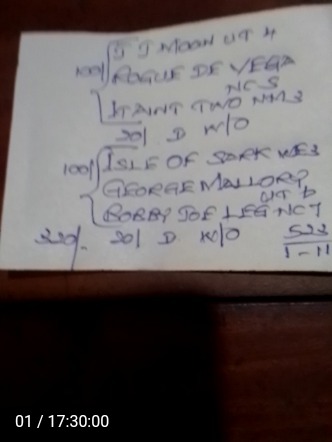 100/ J J MOON UT 4
ROGUE DE VEGA
NC 5
ITAINT TWO NM3
20/ D W/O
100/ ISLE OF SARK WE3
GEORGE MALLORY
UT 6
BOBBY JOE LEG NC7
320/. 20/ D W/O 523
1-11
01 / 17:30:00